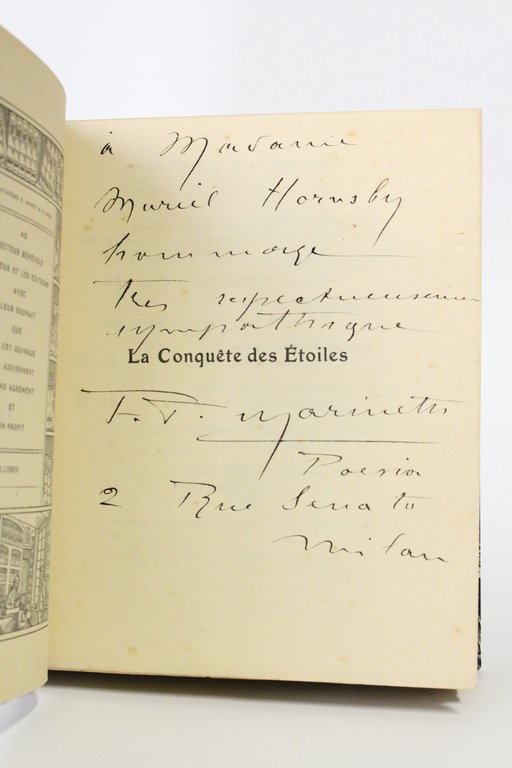 AU
LECTEUR BÉNÉVOLE
ET LES EDITEURS
AVEC
LEUR SOUHAIT
QUE
CET OUVRAGE
ADVIENNENT
AGREMENT
ET
PROFIT
à Madame
Muriel Hornsby
hommage
très respectueusement
sympathique
La Conquête des Étoiles
F. T. Marinetti
Poesia
2 Rue Senato
Milan